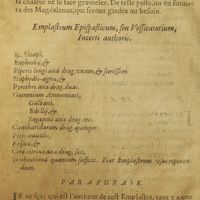 la chaleur ne le face grumeler. De telle paste, on en forme-
ra des Magdaleons, qui seront gardez au besoin.
Emplastrum Epispasticum, seu Vessicatorium,
Incerti authoris.
℞. Sinapi,
Euphorbij, &
Piperis longi ana drag. unam, & semissem
Staphydis-agria, &
Pyretri ana drag. duas.
Gummatum, Ammoniaci,
Galbani,
Bdellij, &
Sagapeni ana drag. tres.
Cantharidarum drag. quinque.
Picis navalis,
Resina, &
Cera citrina ana drag. sex.
Terebinthina quantum sufficit. Fiat Emplastrum
PARAPHRASE
Je ne sçay qui est l'autheur de cest Emplastre, tant y a que